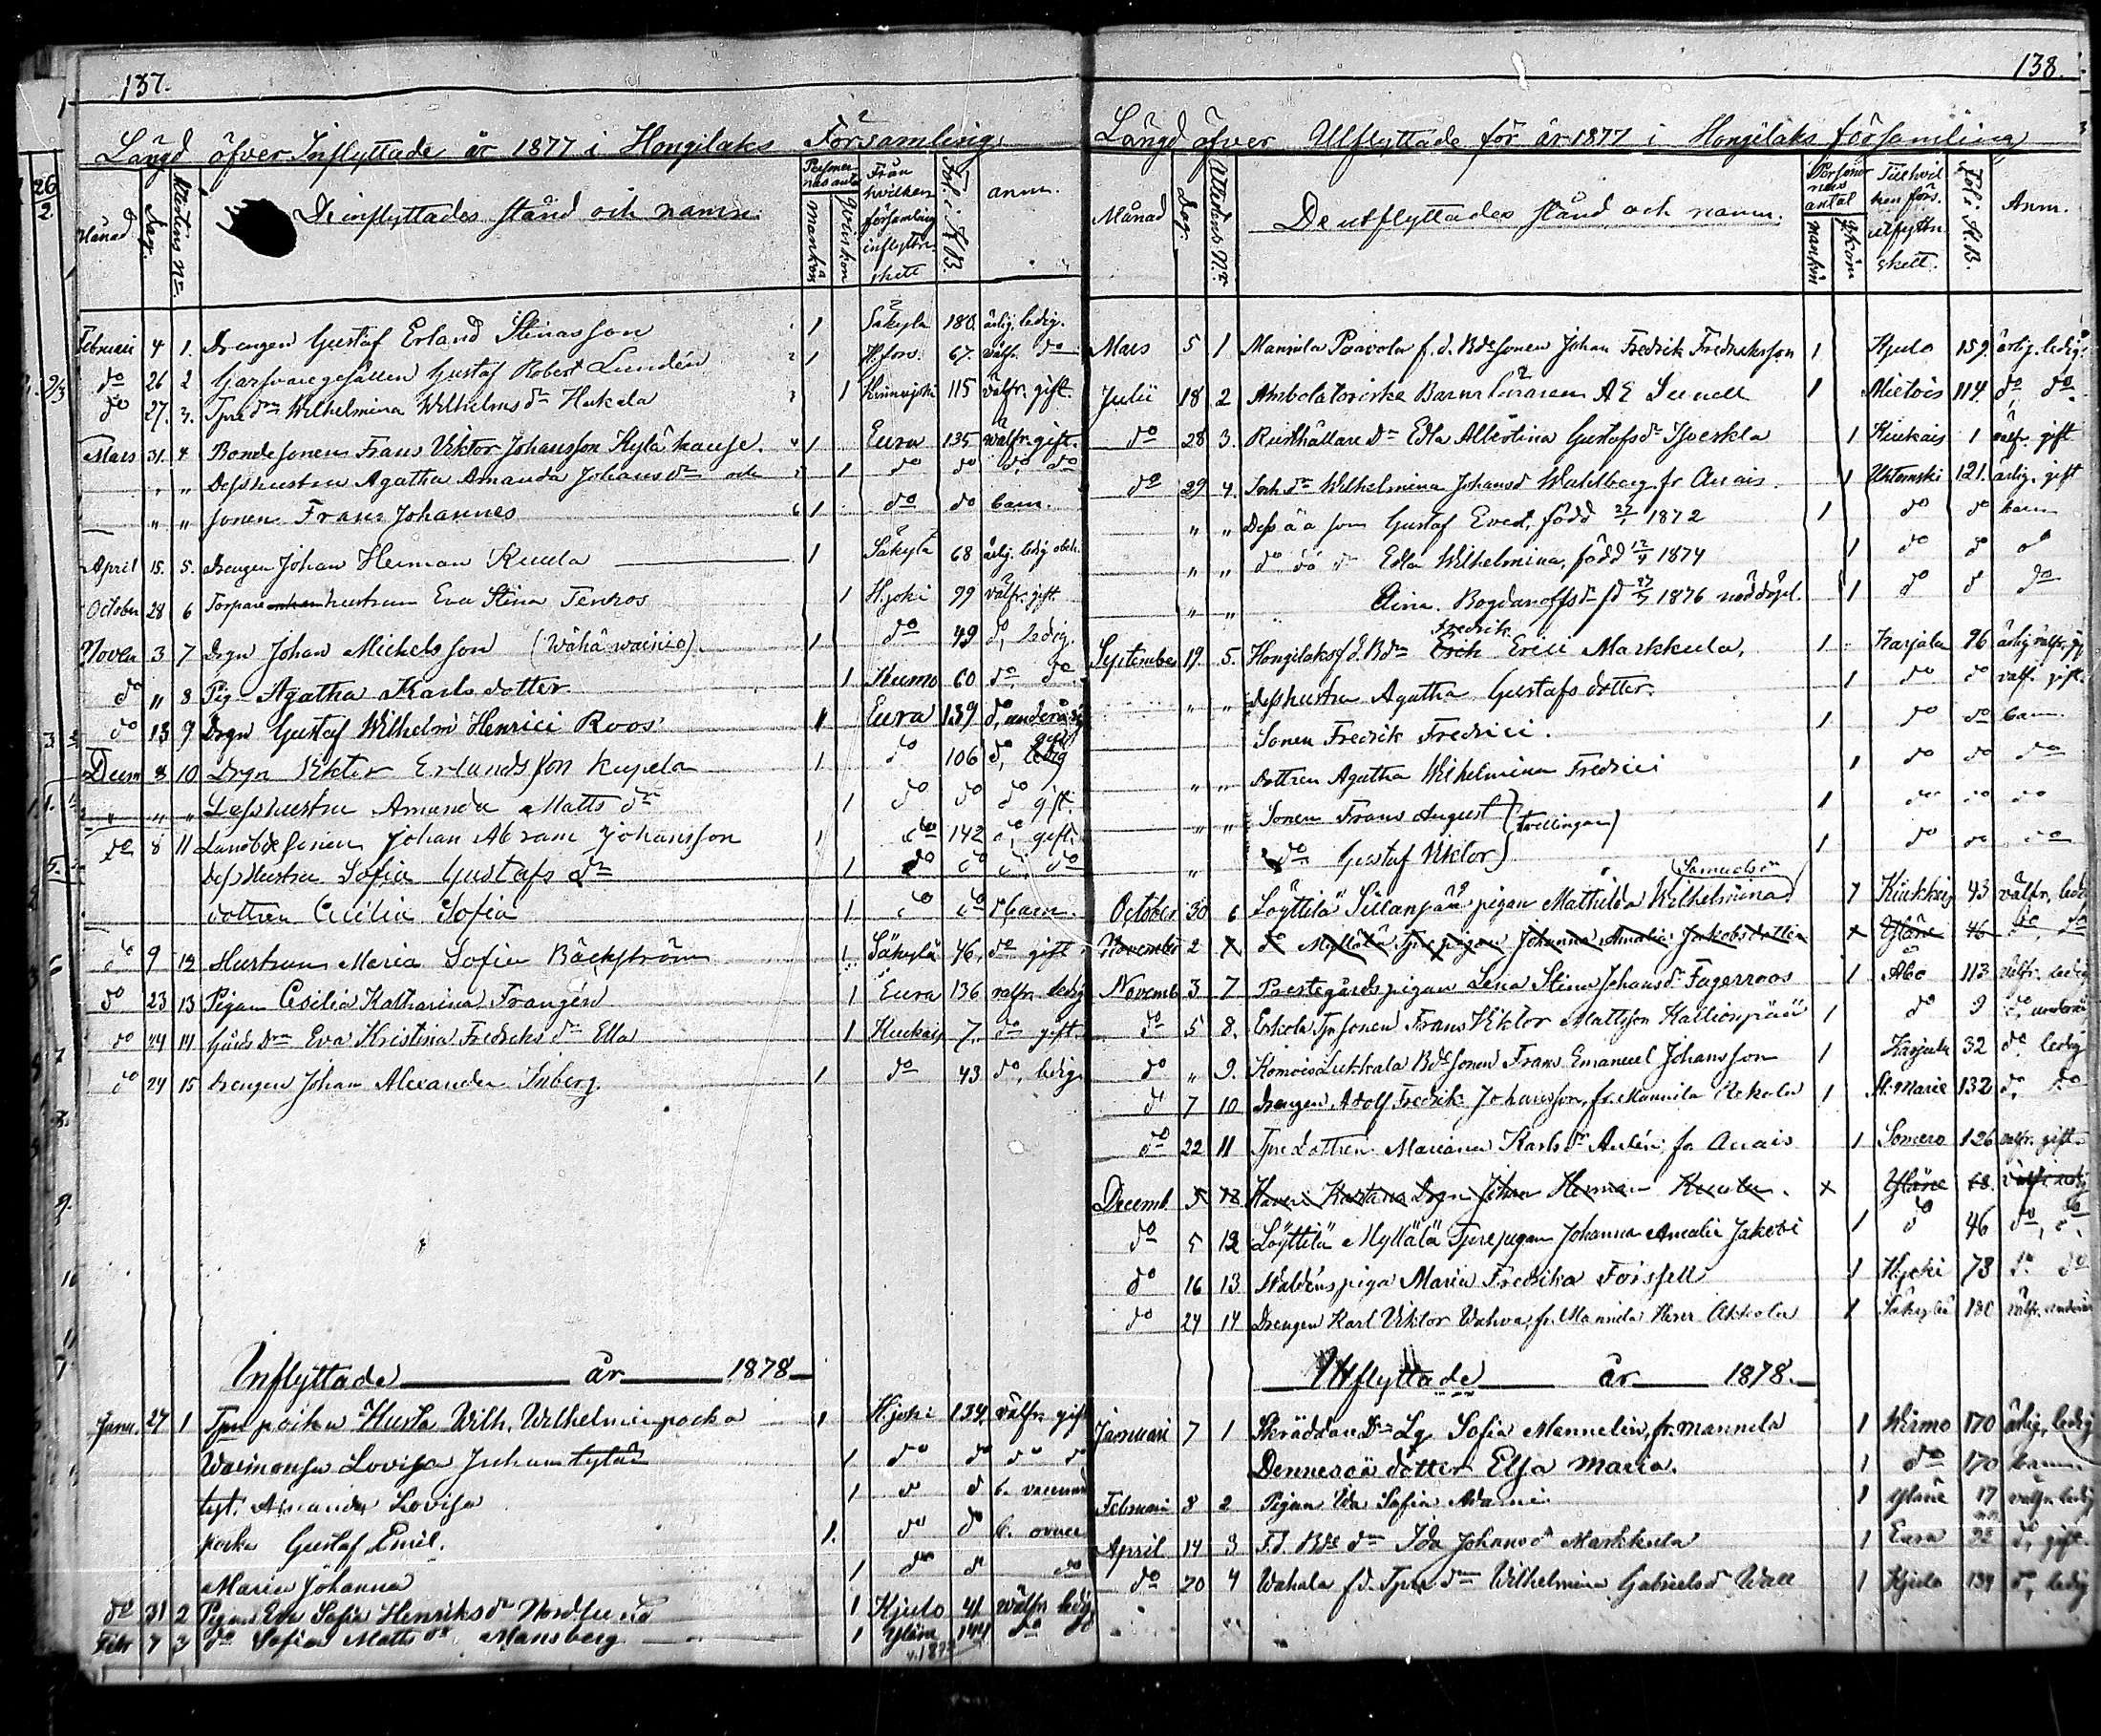 137.
Längd öfver Inflyttade år 1877 i Hongilaks Församling.
Månad Dag. Attestens No. De inflyttades stånd och namn. Personernas antal Mankön Qvinkön Från hvilken församling inflyttn. skett Fol. i K.B. anm.
Februari 4 1. Drengen Gustaf Erland Stenasson 1 Säkyla 180. ärlig, ledig.
do 26 2 Garfvaregesällen Gustaf Robert Lundén 2 1 H.fors. 67. välfr. do
do 27. 3. Tpredn Wilhelmina Wilhelmsdr Hukala 3 1 Hinnerjoki 115 välfr. gift.
Mars 31. 4 Bondesonen Frans Viktor Johansson Kylähause. 4 1 Eura 135 välfr. gift.
" " Desshustru Agatha Amanda Johansdr och 5 1 do do do do
" " sonen Frans Johannes 6 1 do do barn.
April 15. 5. Drengen Johan Herman Kuula 1 Säkylä 68 ärlig ledig
October 28 6 Torpare hustrun Eva Stina Tenkos 1 H.joki 99 välfr. gift
Novem 3 7 Drgn Johan Michelsson (Wähä wainio). 1 do 49 do, ledig.
do 11 8 Pig. Agatha Karlsdotter 1 Kumo 60 do, do.
do 13 9 Drgn Gustaf Wilhelm Henrici Roos 1 Eura 139 do, underårig
Decem 8 10 Drgn Viktor Erlandsson Kupila 1 do 106 do, ledig gift
" " " Desshustru Amanda Matts dr 1 do do do gift.
do 8 11 Landbdesonen Johan Abram Johansson 1 do 142 do, gift.
Desshustru Sofia Gustafs dr 1 do do do, do
dottren Cecilia Sofia 1 do do barn.
do 9 12 Hustrun Maria Sofia Bäckström 1 Säkylä 46, do gift.
do 23 13 Pigan Cesilia Katharina Frangén 1 Eura 136 välfr. ledig
do 24 14 Gårds dn Eva Kristina Fredriks dr Ella 1 Kiukais 7. do gift.
do 24 15 Drengen Johan Alexander Inberg. 1 do 43 do, ledig.
Inflyttade år 1878
Janu. 27 1 Tpn poikan Kusta Wilh. Wilhelmin poika 1 H.joki 134, välfr. gift
Waimonsa Lovisa Juhan tytär 1 do do do do
tyt. Amanda Lovisa 1 do do
poika Gustaf Emil. 1. do do
Maria Johanna 1 do do do
do 31 2 Pigan Eva Sofia Henriksdr Nordlund 1 Kjulo 41 välfr. ledig
Febr 7 3 do Sofia Matts dr Mansberg 1 Yläne 144 do do
138.
Längd öfver Utflyttade för år 1877 i Hongilaks församling
Månad Dag. Attestens No. De utflyttades stånd och namn. Personernas antal mankön qvkön Till hvilken förs. utflyttn. skett. Fol. i K.B. Anm.
Mars 5 1 Mannila Paavola f.d. Bdesonen Johan Fredrik Fredriksson 1 Kjulo 159. ärlig. ledig.
Julii 18 2 Ambolatoriske Barnläraren A E Lunell 1 Mietois 114. do do.
do 28 3. Rusthållare dn Edla Albertina Gustafsdr Isoerkla 1 Kiukais 1 välfr. gift
do 29 4. Inh. dr Wilhelmina Johansd Wahlberg, fr Auais. 1 Uktomski 121. ärlig. gift
" " Dess äa son Gustaf Evert, född 27/1 1872 1 do do barn
" " do da dr Edla Wilhelmina, född 12/4 1874 1 do do do
" " Aina. Bogdanoffsdr fd 1876 nöddöpt. 1 do do do
September 19. 5. Hongilaks f.d. Bdn Erik Fredrik Erici Markkula, 1 Karjala 96 ärlig välfr. gft
" " Desshustru Agatha Gustafsdotter. 1 do do välf. gift.
Sonen Fredrik Fredrici. 1 do do barn.
" " Dottren Agatha Wilhelmina Fredrici 1 do do do
" " Sonen Frans August (tvillingar) 1 do do do
" do Gustaf Viktor 1 do do do
October 30 6 Löyttilä Sillanpää pigan Mathilda Wilhelmina Samuelsdr 1 Kiukais 43 välfr, ledig
November 2 7 do Myllälä Tpre pigan Johanna Amalia Jakobsdotter x Yläne 46 do, do
Novemb. 3 7 Prestegårdspigan Lena Stina Johansdr Fagerroos 1 Åbo 113 välfr. ledig
do 5 8. Erkola Tpr sonen Frans Viktor Mattsson Kallionpää 1 do 9 do,
do " 9. Komois Lukkala Bdesonen Frans Emanuel Johansson 1 Karjala 32 do ledig
do 7 10 Drengen, Adolf Fredrik Johansson, fr. Mannila Rekola 1 St. Marie 132 do, do
do 22 11 Tpredottren Mariana Karlsdr Antén, fr Auais 1 Somero 126 välfr. gift.
Decemb. 5 12 Drgn Johan Herman Kuula. x Yläne 68. välfr. ledig
do 5 12 Löyttilä Myllälä Tprepigan Johanna Amalia Jakobi 1 do 46 do, do
do 16 13 Waldéns piga Maria Fredrika Forssell 1 H.joki 73 do do
do 24 14 Drengen Karl Viktor Vahva, fr. Mannila Akkola 1 Säkylä 180 välfr.
Utflyttade år 1878.
Januari 7 1 Skräddare dn Lg Sofia Mannelin, fr. mannila 1 Wirmo 170 ärlig, ledig
Dennes oä dotter Elsa Maria. 1 do 170 barn.
Februari 8 2 Pigan Ida Sofia Adami 1 Yläne 17 välfr. ledig
April 14 3 F.d. Bde dn Ida Johansdr Markkula 1 Eura 32 do, gift.
do 20 4 Wahala f.d. Tpre dn Wilhelmina Gabrielsdr Wall 1 Kjulo 139 do, ledig